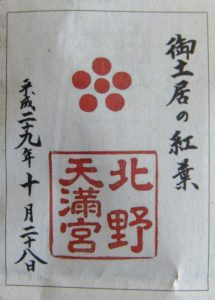 御土居の紅葉
北野
天満宮
平成二十九年十月二十八日